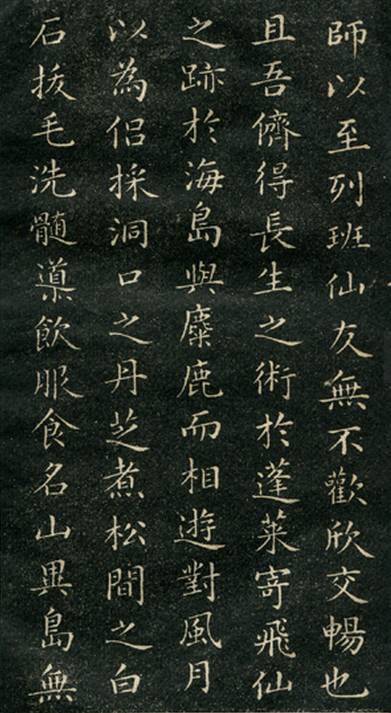 師以至列班仙友無不歡欣交暢也
且吾儕得長生之術於蓬萊寄飛仙
之跡於海島與麋鹿而相遊對風月
以為侶採洞口之丹芝煮松間之白
石拔毛洗髓導飲服食名山異島無